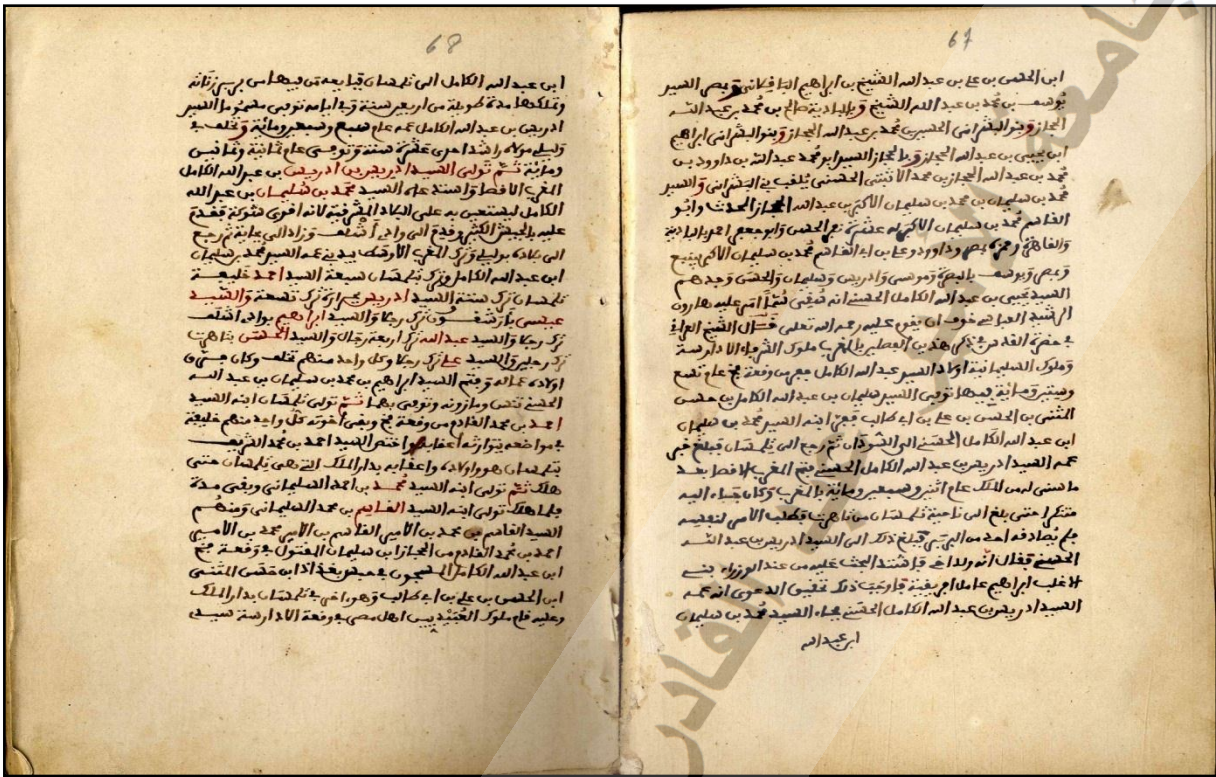 67
ابن الحسن بن علي بن عبد الله الشيخ بن ابراهيم وبمصر السيد
يوسف بن محمد بن عبد الله الشيخ وبالبادية صالح بن محمد بن عبد الله
الحجاز وبنو الحسين بن محمد بن عبد الله الحجاز وبنو ابراهيم
ابن يحيى بن عبد الله الحجاز وبالحجاز السيد ابو محمد عبد الله بن داوود بن
محمد بن عبد الله الحجاز بن محمد الحسني يلقب والسيد
محمد بن سليمان بن محمد بن سليمان الاكبر بن عبد الله الحجاز المحدث وابو
القاسم محمد بن سليمان الاكبر له عشرة نعم الحسن وابو جعفر احمد بالبادية
والقاهرة وحمزة بمصر وداوود وعلي بن ابي القاسم محمد بن سليمان الاكبر بينبع
وبمصر ويوسف وموسى وادريس وسليمان والحسن
السيد يحيى بن عبد الله الكامل الحسني انه امر عليه هارون
الرشيد العباسي خوف ان يقوم عليه رحمه الله تعلى قال الشيخ العراقي
في حضرة القدس في ذكر هذين البطلين بالمغرب ملوك الشرفاء الادارسة
وملوك السليمانية اولاد السيد عبد الله الكامل وقعة فخ عام تسع
وستين ومائة فيها توفي السيد سليمان بن عبد الله الكامل بن حسن
المثنى بن الحسن بن علي بن ابي طالب ففر ابنه السيد محمد بن سليمان
ابن عبد الله الكامل الحسني الى السودان ثم رجع الى تلمسان فبلغ خبر
عمه السيد ادريس بن عبد الله الكامل الحسني فتح المغرب الاقصا بعد
ما هنى له من الملك عام اثنين وسبعين ومائة بالمغرب وكان جاء اليه
متنكرا حتى بلغ الى ناحية تلمسان من تاهرت فطلب الامر لنفسه
فلم يصادفه احد من البربر فبلغ ذلك الى السيد ادريس بن عبد الله
الحسني فقال انه ولد اخي فاشتد البحث عليه من عند الوزراء بنـي
الاغلب ابراهيم عامل افريقية فاوجب ذلك تحقيق الدعوى انه عمه
السيد ادريس بن عبد الله الكامل الحسني فجاء السيد محمد بن سليمان
ابن عبد الله
68
ابن عبد الله الكامل الى تلمسان فبايعه من فيها من بربر زناتة
وتملكها مدة طويلة من اربعين سنة وفي ايامه توفي مسموما السيد
ادريس بن عبد الله الكامل عمه عام سبع وسبعين ومائة وتخلف في
وليلي مولاه راشد احدى عشرة سنة وتوفي عام ثمانية وثمانين
ومائة ثم تولى السيد ادريس بن ادريس بن عبد الله الكامل
المغرب الاقصا واستدعاه السيد محمد بن سليمان بن عبد الله
الكامل ليستعين به على البلاد المشرقية لانه اقوى شوكة فقدم
عليه بالجيش الكثير وقدم الى وادي أشلف وزاد الى غاية ثم رجع
الى بلاده بوليلي وترك المغرب الاوسط بيد بن عمه السيد محمد بن سليمان
ابن عبد الله الكامل وترك بتلمسان سبعة السيد احمد خليفة
تلمسان ترك ستة السيد ادريس ترك تسعة والسيد
عيسى بأرشقون ترك رجلا والسيد ابراهيم بوادي اشلف
ترك رجلا والسيد عبد الله ترك اربعة رجال والسيد الحسن بتاهرت
ترك رجلين والسيد علي ترك رجلا وكل واحد منهم تخلف وكان
اولاده عماله وفتح السيد ابراهيم بن محمد بن سليمان بن عبد الله
الحسني تنس ومازونة وتوفي بهما ثم تولى تلمسان ابنه السيد
احمد بن محمد القادم من وقعة فخ وبقى اخوته كل واحد منهم خليفة
في مواضعه يتوارثه أعقابه واختص السيد احمد بن محمد الشريف
بتلمسان هو واولاده واعقابه بدار الملك التي هي تلمسان حتى
هلك ثم تولى ابنه السيد محمد بن احمد السليماني وبقى مدة
فلما هلك تولى ابنه السيد القاسم بن محمد السليماني ومنهم
السيد القاسم بن محمد بن الأمير القاسم بن الأمير محمد بن الأمير
احمد بن محمد القادم من الحجاز ابن سليمان المقتول في وقعة فخ
ابن عبد الله الكامل المسجون في حبس بغداذ ابن حسن المثنى
ابن الحسن بن علي بن ابي طالب وهو اخر في تلمسان بدار الملك
وعليه قام ملوك العُبَيْديين اهل مصر في وقعة الادارسة